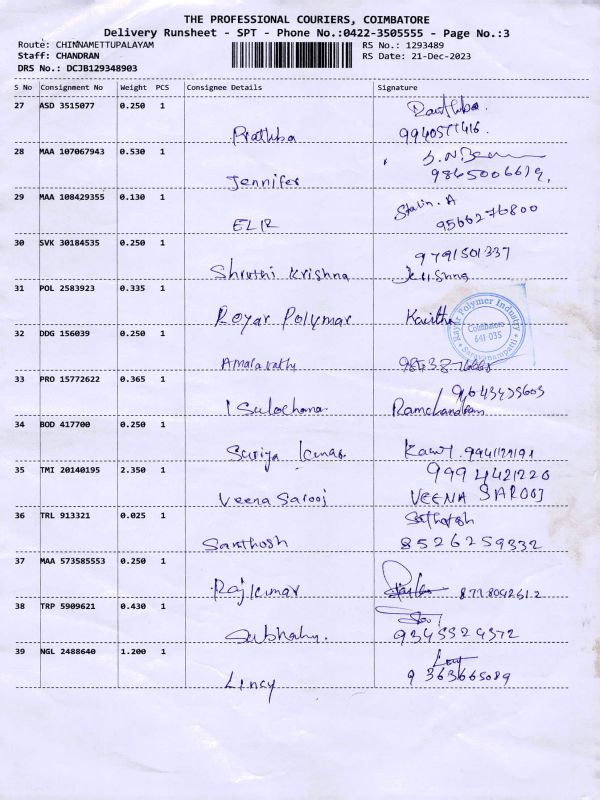 THE PROFESSIONAL COURIERS, COIMBATORE
Delivery Runsheet - SPT - Phone No.:0422-3505555 - Page No.:3
Route: CHINNAMETTUPALAYAM RS No.: 1293489
Staff: CHANDRAN RS Date: 21-Dec-2023
DRS No.: DCJB129348903
S No Consignment No Weight PCS Consignee Details Signature
27 ASD 3515077 0.250 1
Prathba
28 MAA 107067943 0.530 1
Jennifer 9865006619
29 MAA 108429355 0.130 1 Stalin. A
9566276800
30 SVK 30184535 0.250 1 9791501337
Shruthi Krishna Krishna
31 POL 2583923 0.335 1
Royar Polymar Kavitha
Rayar Polymer Industry
Coimbatore
641 035
Saravanampatti
32 DDG 156039 0.250 1
Amaravathy
33 PRO 15772622 0.365 1
Sulochana Ramchandran
34 BOD 417700 0.250 1
Suriya Kumar
35 TMI 20140195 2.350 1 9994421220
Veena Sarooj VEENA SAROOJ
36 TRL 913321 0.025 1
Santhosh 8526259332
37 MAA 573585553 0.250 1
Rajkumar
38 TRP 5909621 0.430 1
9345524372
39 NGL 2488640 1.200 1
Lincy 9363665089